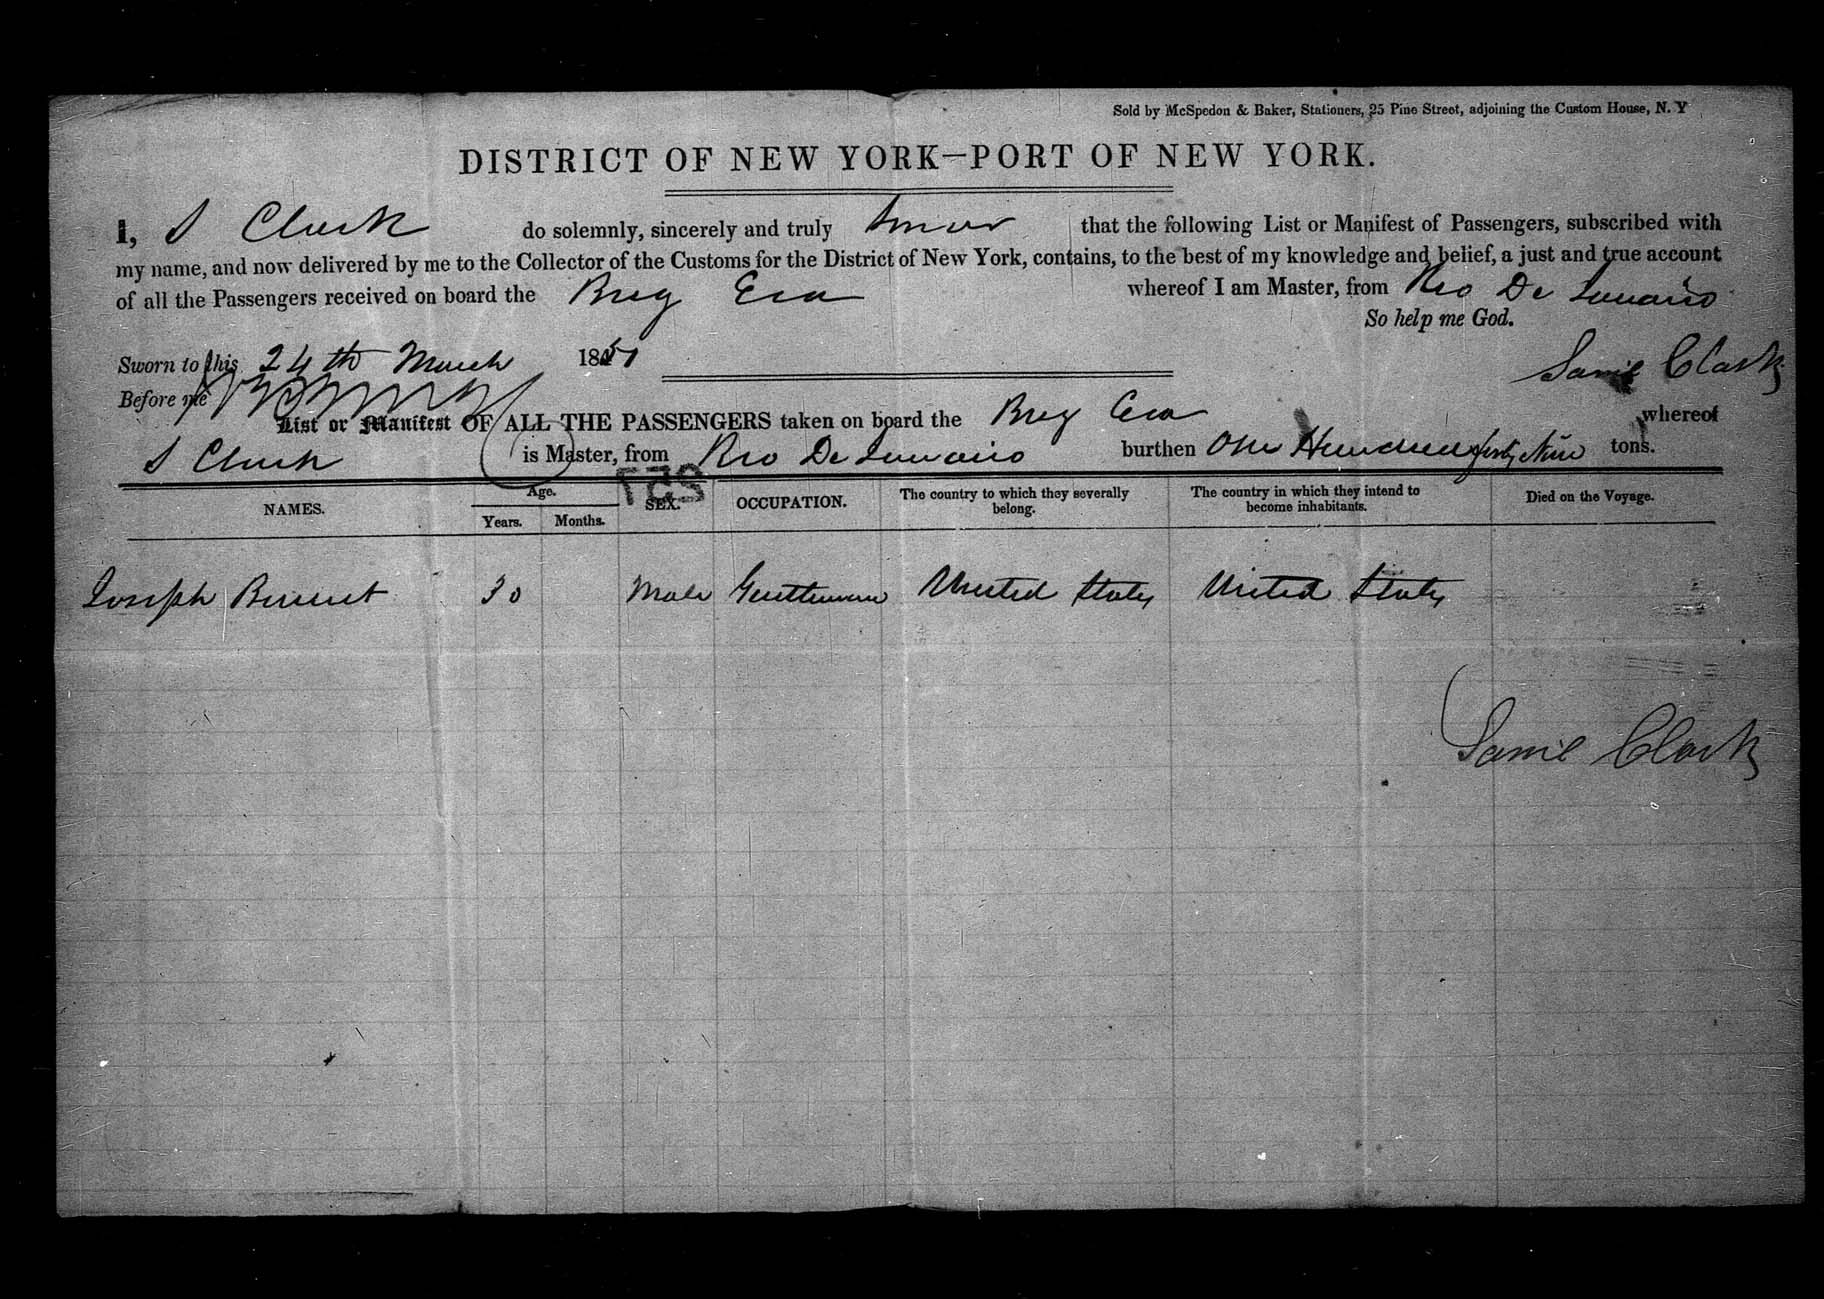 Sold by McSpedon & Baker, Stationers, 25 Pine Street, adjoining the Custom House, N. Y
DISTRICT OF NEW YORK—PORT OF NEW YORK.
I, S Clark do solemnly, sincerely and truly Swear that the following List or Manifest of Passengers, subscribed with
my name, and now delivered by me to the Collector of the Customs for the District of New York, contains, to the best of my knowledge and belief, a just and true account
of all the Passengers received on board the Brig Era whereof I am Master, from Rio De Janairo
So help me God.
Sworn to this 24th March 1851
Saml Clark
Before me
List or Manifest OF ALL THE PASSENGERS taken on board the Brig Era whereof
S Clark is Master, from Rio De Janairo burthen One Hundred forty Nine tons.
NAMES. Age. Years. Months. SEX. OCCUPATION. The country to which they severally belong. The country in which they intend to become inhabitants. Died on the Voyage.
Joseph 30 Male Gentleman United States United States
Saml Clark